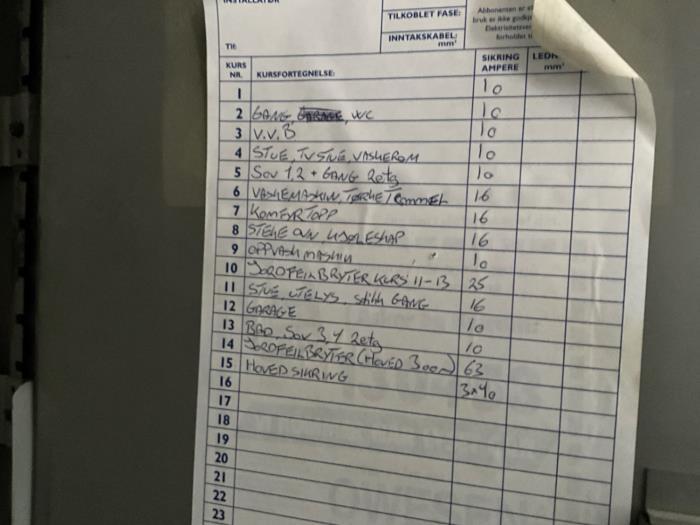 INSTALLATØR
TILKOBLET FASE:
INNTAKSKABEL:
mm²
Abbonenten er
bruk er ikke godkj
Elektrisitetsver
forholdet ti
Tlf:
KURS NR. KURSFORTEGNELSE: SIKRING AMPERE LEDN mm²
1 10
2 GANG, WC 10
3 V.V.B 10
4 STUE, TV STUE, VASKEROM 10
5 Sov 1,2 + GANG 2etg 10
6 VASKEMASKIN, TØRKETROMMEL 16
7 KOMFYRTOPP 16
8 STEKE OVN KJØLESKAP 16
9 OPPVASKMASKIN 10
10 JORDFEILBRYTER KURS 11-13 25
11 STUE, UTELYS, stikk GANG 16
12 GARAGE 10
13 BAD, Sov 3,4 2etg 10
14 JORDFEILBRYTER (HOVED 300mA) 63
15 HOVEDSIKRING 3x40
16
17
18
19
20
21
22
23